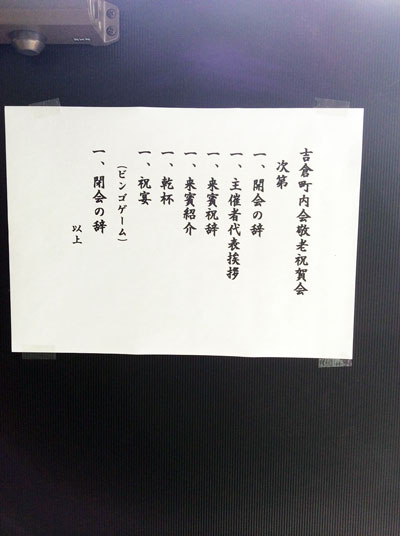 吉倉町内会敬老祝賀会
次第
一、開会の辞
一、主催者代表挨拶
一、来賓祝辞
一、来賓紹介
一、乾杯
一、祝宴
（ビンゴゲーム）
一、閉会の辞
以上